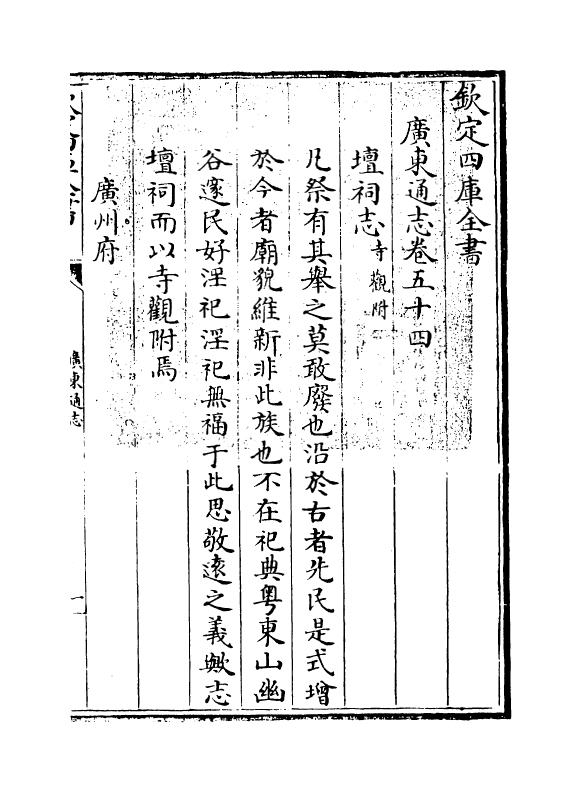 欽定四庫全書
廣東通志卷五十四
壇祠志寺觀附
凡祭有其舉之莫敢廢也沿於古者兆民是式增
於今者廟貌維新非此族也不在祀典粤東山幽
谷邃民好淫祀淫祀無福于此思敬遠之義歟志
壇祠而以寺觀附焉
廣州府
廣東通志
一